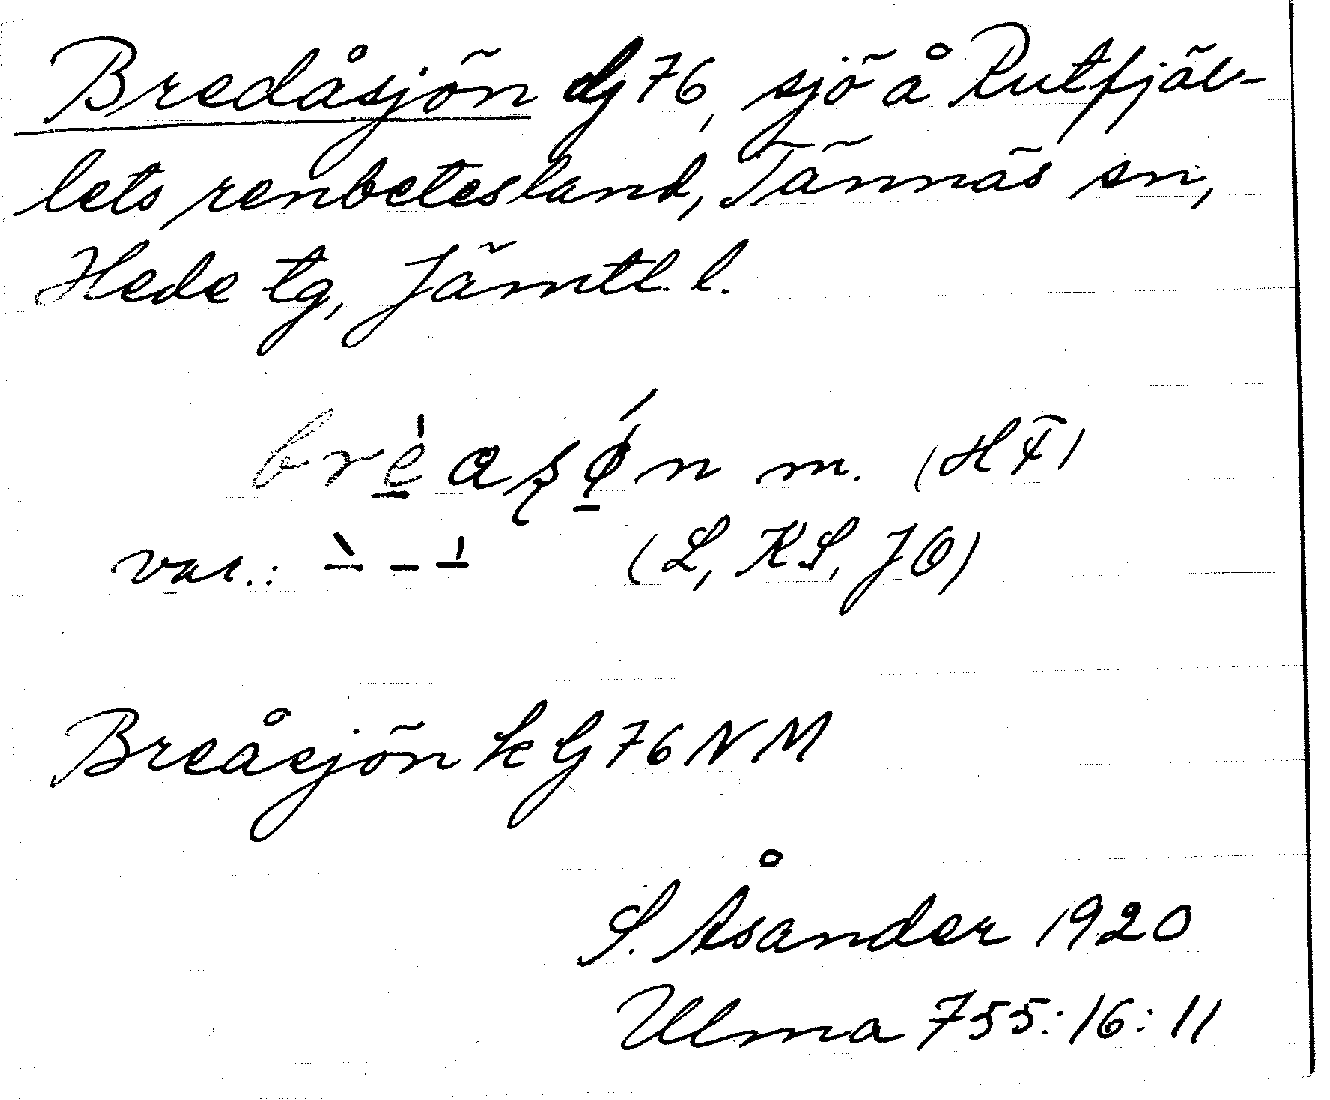 Bredåsjön dj 76, sjö å Rutfjäl-
lets renbetesland, Tännäs sn,
Hede tg, Jämtl. l.
m. (HF)
var.: (L, KS, JO)
Breåsjön k Gj 76 NM
S. Åsander 1920
Ulma 755:16:11